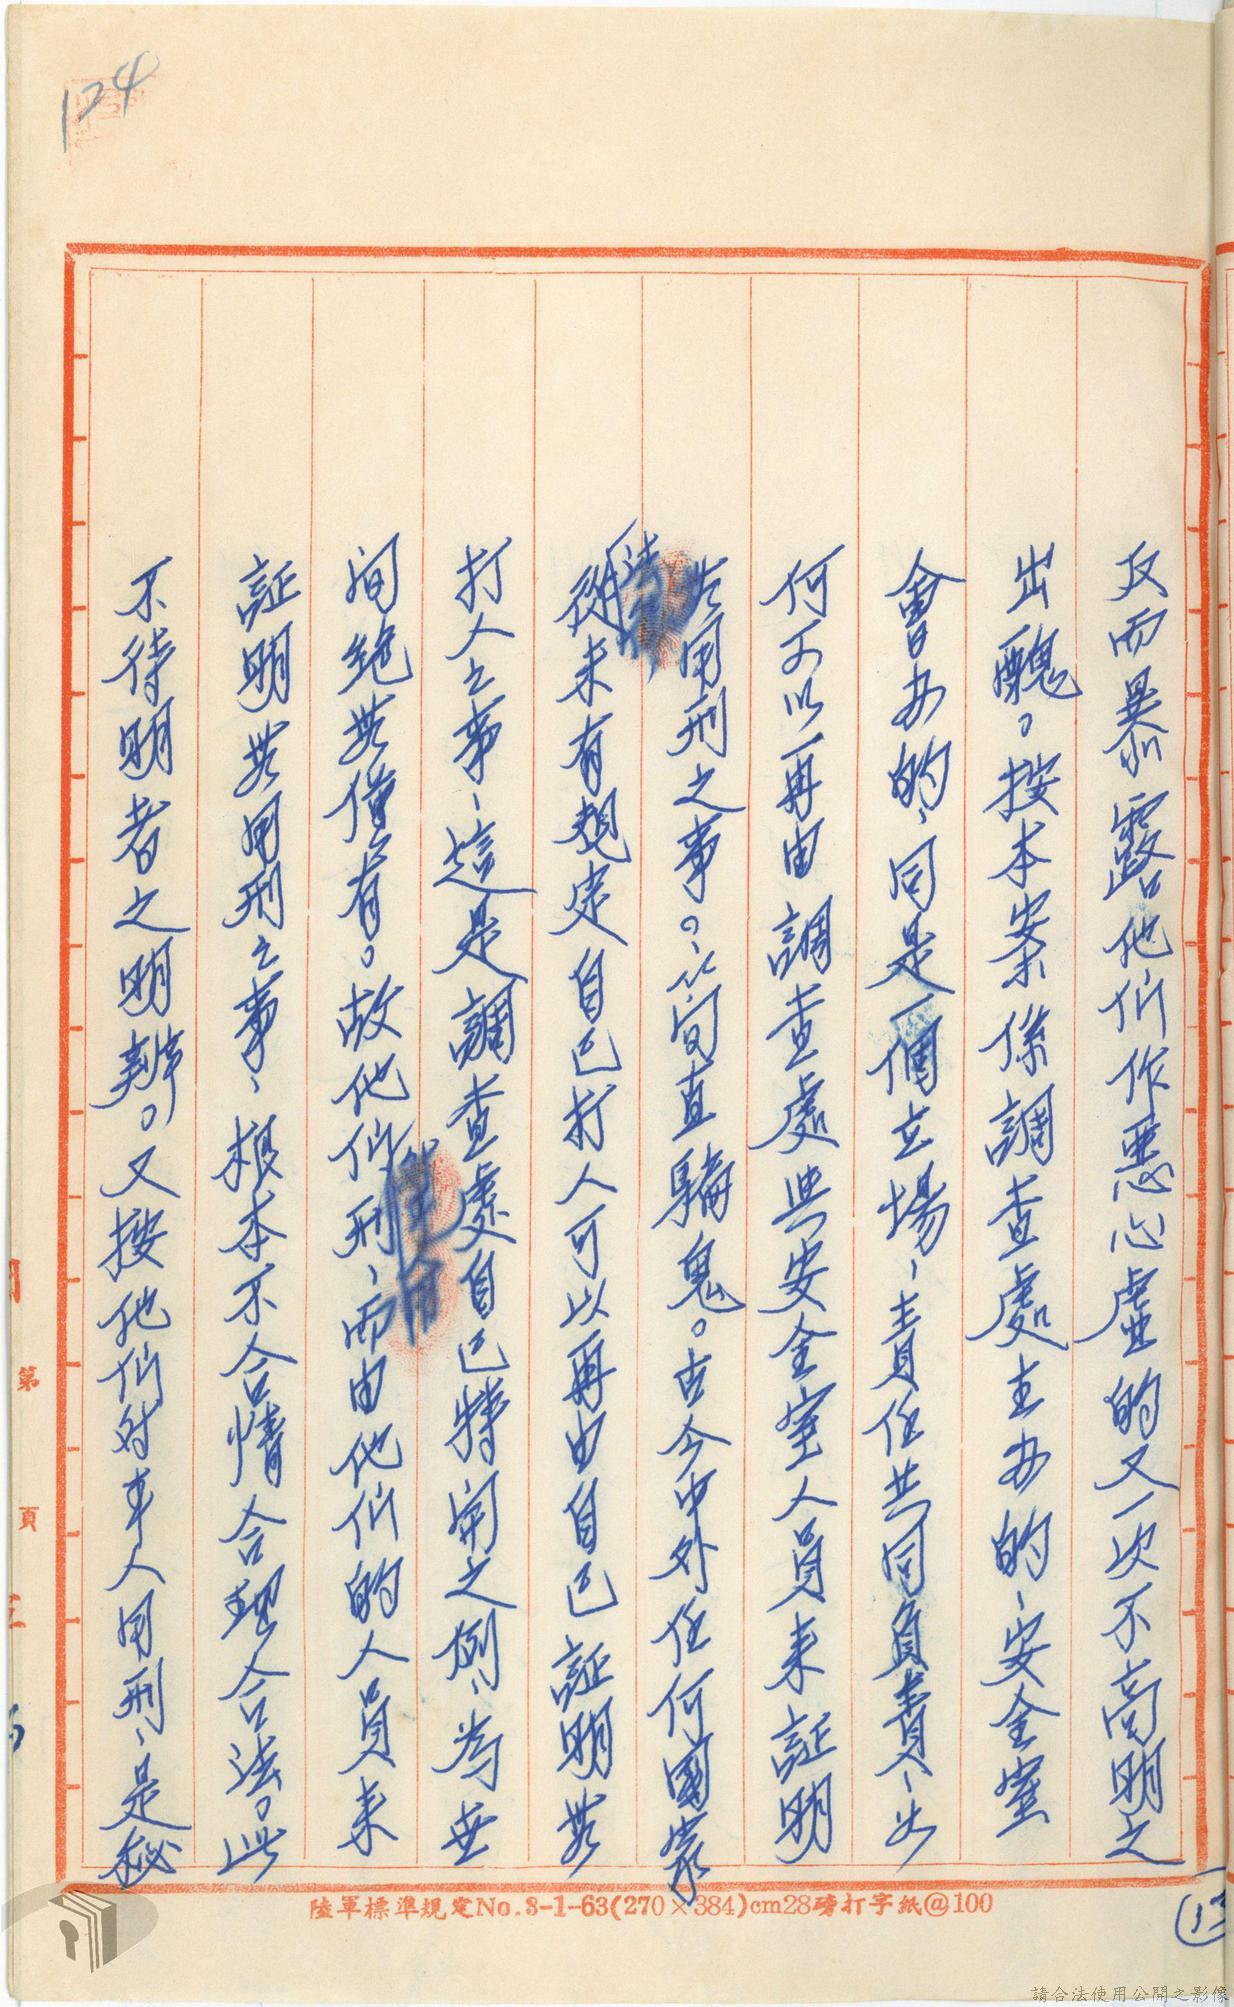 124
反而暴露他们作惡心虛的又一次不高明之
出醜。按本案係調查處主办的、安全室
會办的、同是一個立場、責任共同負責、如
何可以再由調查處與安全室人員来証明
无用刑之事。、簡直騙鬼。古今中外任何國家
法律、
從来有規定自己打人可以再由自己証明無
打人之事、這是調查處自己特開之例、為世
间絶無僅有。故他们刑、而由他们的人員来
証明無用刑之事、根本不合情合理合法。此
不待明者之明辨。又按他们对本人用刑、是秘
第 頁
陸軍標準規定No.3-1-63(270×384)cm28磅打字紙@100
請合法使用公開之影像